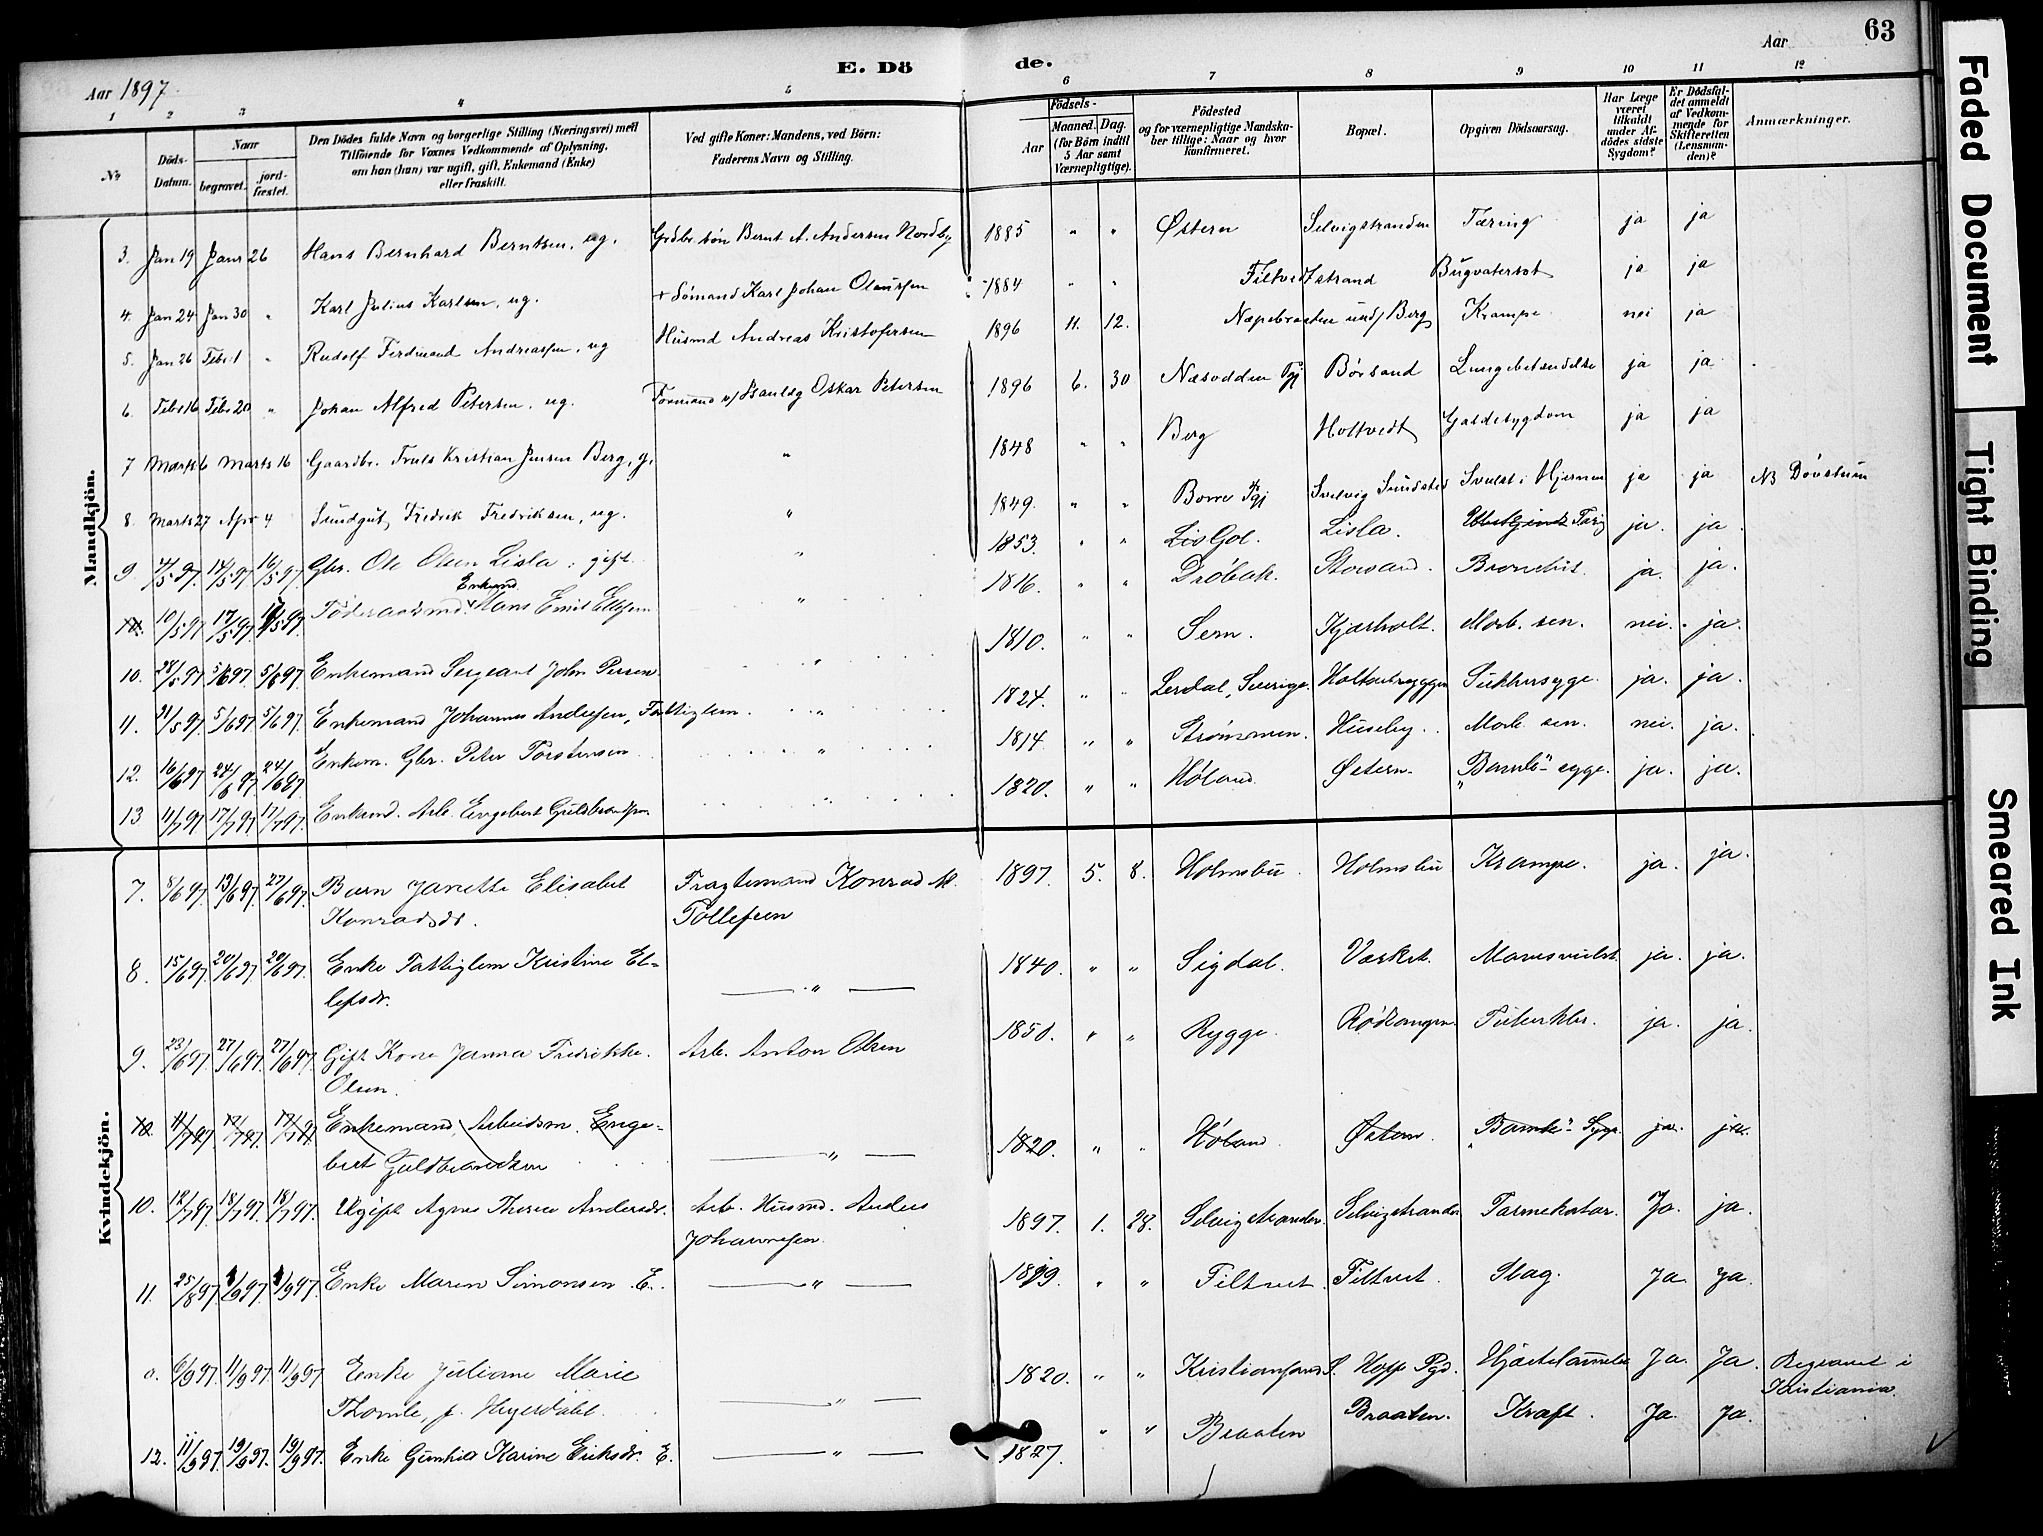 63
E. Dö de.
Aar 1897
Aar
1 2 3 4 5 6 7 8 9 10 11 12
No Döds-Datum. Naar begravet. jord-fæstet. Den Dödes fulde Navn og borgerlige Stilling (Næringsvei) med Tilföiende for Voxnes Vedkommende af Oplysning, om han (hun) var ugift, gift, Enkemand (Enke) eller fraskilt. Ved gifte Koner: Mandens, ved Börn: Faderens Navn og Stilling. Födsels- Aar Maaned. Dag. (for Börn indtil 5 Aar samt Værnepligtige). Födested og for værnepligtige Mandska-ber tillige: Naar og hvor konfirmeret. Bopæl. Opgiven Dödsaarsag. Har Læge været tilkaldt under Af-dödes sidste Sygdom? Er Dödsfal-det anmeldt af Vedkom-mende for Skifteretten (Lensman-den)? Anmærkninger.
Mandkjön.
3. Jan 19 Janr 26 Hans Bernhard Berntsen, ug. Grdbr. søn Bernt A. Andersen Nordby 1885 " " Østern Selvigstranden Tæring ja ja
4. Jan 24 Jan 30 " Karl Julius Karlsen, ug. + Sömand Karl Johan Olaussen 1884 " " Filtvedtstrand Bugvatersot ja ja
5. Jan 26 Febr 1 " Rudolf Ferdinand Andreassen, ug Husmd Andreas Kristofersen 1896 11. 12. Næpebraaten und/ Berg Krampe nei ja
6. Febr 16 Febr 20 " Johan Alfred Petersen, ug. Formand v/ Oskar Petersen 1896 6. 30 Næsodden Pgj Börsand Lungebetændelse ja ja
7 Marts 6 Marts 16 Gaardbr. Truls Kristian Jensen Berg, g. " 1848 " " Berg Holtvedt Galdesygdom ja ja
8. Marts 27 Apr 4 Fredrik Fredriksen, ug. " 1849. " " Borre Pgj Svelvig Svulst i Hjernen ja ja NB Dövstum
9. 7/5 97. 14/5 97 16/5 97. Gbr. Ole Olsen Lisla, gift. " 1853. " " Lisla. ja. ja.
10. 10/5 97 17/5 97 17/5 97. Föderaadsmd. Enkemd. Hans Emil Ellefsen " 1816. " " Dröbak. Storsand. Bronchit. ja. ja.
10. 28/5 97 5/6 97. 5/6 97. Enkemand Sergeant John Persen " 1810. " " Sem. Kjærholt. Morb. sen. nei. ja.
11. 31/5 97 5/6 97 5/6 97. Enkemand Johannes Andersen, Fattiglem. " 1824. " " Lerdal, Sverige. Sukkersyge. ja. ja.
12. 16/6 97 24/6 97 24/6 97. Enkem. Gbr. Peter Torstensen " 1814. " " Strömmen. Huseby. Morb. sen. nei. ja.
13 11/7 97 17/7 97 17/7 97. Enkemd. Arb. Engebret Guldbrandsen. " 1820. " " Höland. Østern. "Bamle"-syge. ja. ja.
Kvindekjön.
7. 8/6 97. 13/6 97. 27/6 97. Barn Janette Elisabet Konradsdr. Fragtemand Konrad M. Tollefsen 1897. 5. 8. Holmsbu. Holmsbu Krampe. ja. ja.
8. 15/6 97. 20/6 97 20/6 97. Enke Fattiglem Kristine El-lefsdr. — " — 1840. " " Sigdal. Værket. Mavesvulst ja. ja.
9. 23/6 97. 27/6 97. 27/6 97. Gift Kone Janna Fredrikke. Olsen. Arb. Anton Olsen 1850. " " Rygge. Rödtangen. Tuberkler. ja. ja.
10. 11/7 97 17/7 97. 17/7 97 Enkemand, Arbeidsm. Enge-bret Guldbrandsen — " — 1820. " " Höland. Østern. "Bamle"-Syge. ja. ja.
10. 12/7 97 18/7 97. 18/7 97. Ugift Agnes Therese Andersdr. Arb. Husmd. Anders Johannesen. 1897. 1. 28. Selvigstranden. Selvigstranden Tarmekatar. Ja. ja.
11. 25/8 97 1/9 97. 1/9 97. Enke Maren Simonsen. E. — " — 1819. " " Filtvet. Filtvet. Slag. Ja. Ja.
0. 6/9 97. 11/9 97. 11/9 97 Enke Juliane Marie Thomle, f. Heyerdahl. — " — 1820. " " Kristiansand S. Hoff Pgd. Hjertelammelse Ja. Ja. Begravet i Kristiania.
12. 11/9 97. 19/9 97. 19/9 97. Enke Gunhild Karine Eriksdr. E. — " — 1827. " " Braaten Braaten. Kræft. Ja. Ja.
Faded Document
Tight Binding
Smeared Ink